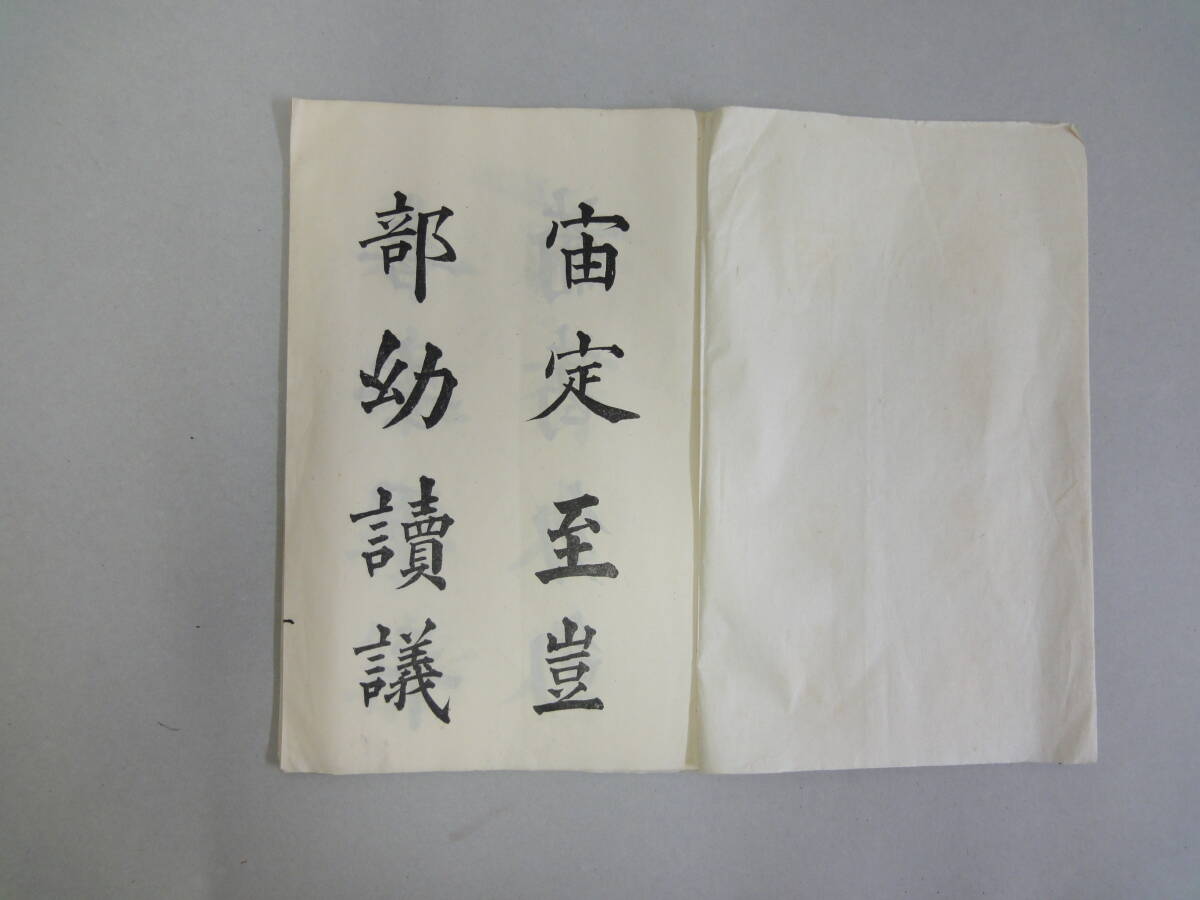 宙定至豈
部幼讀議